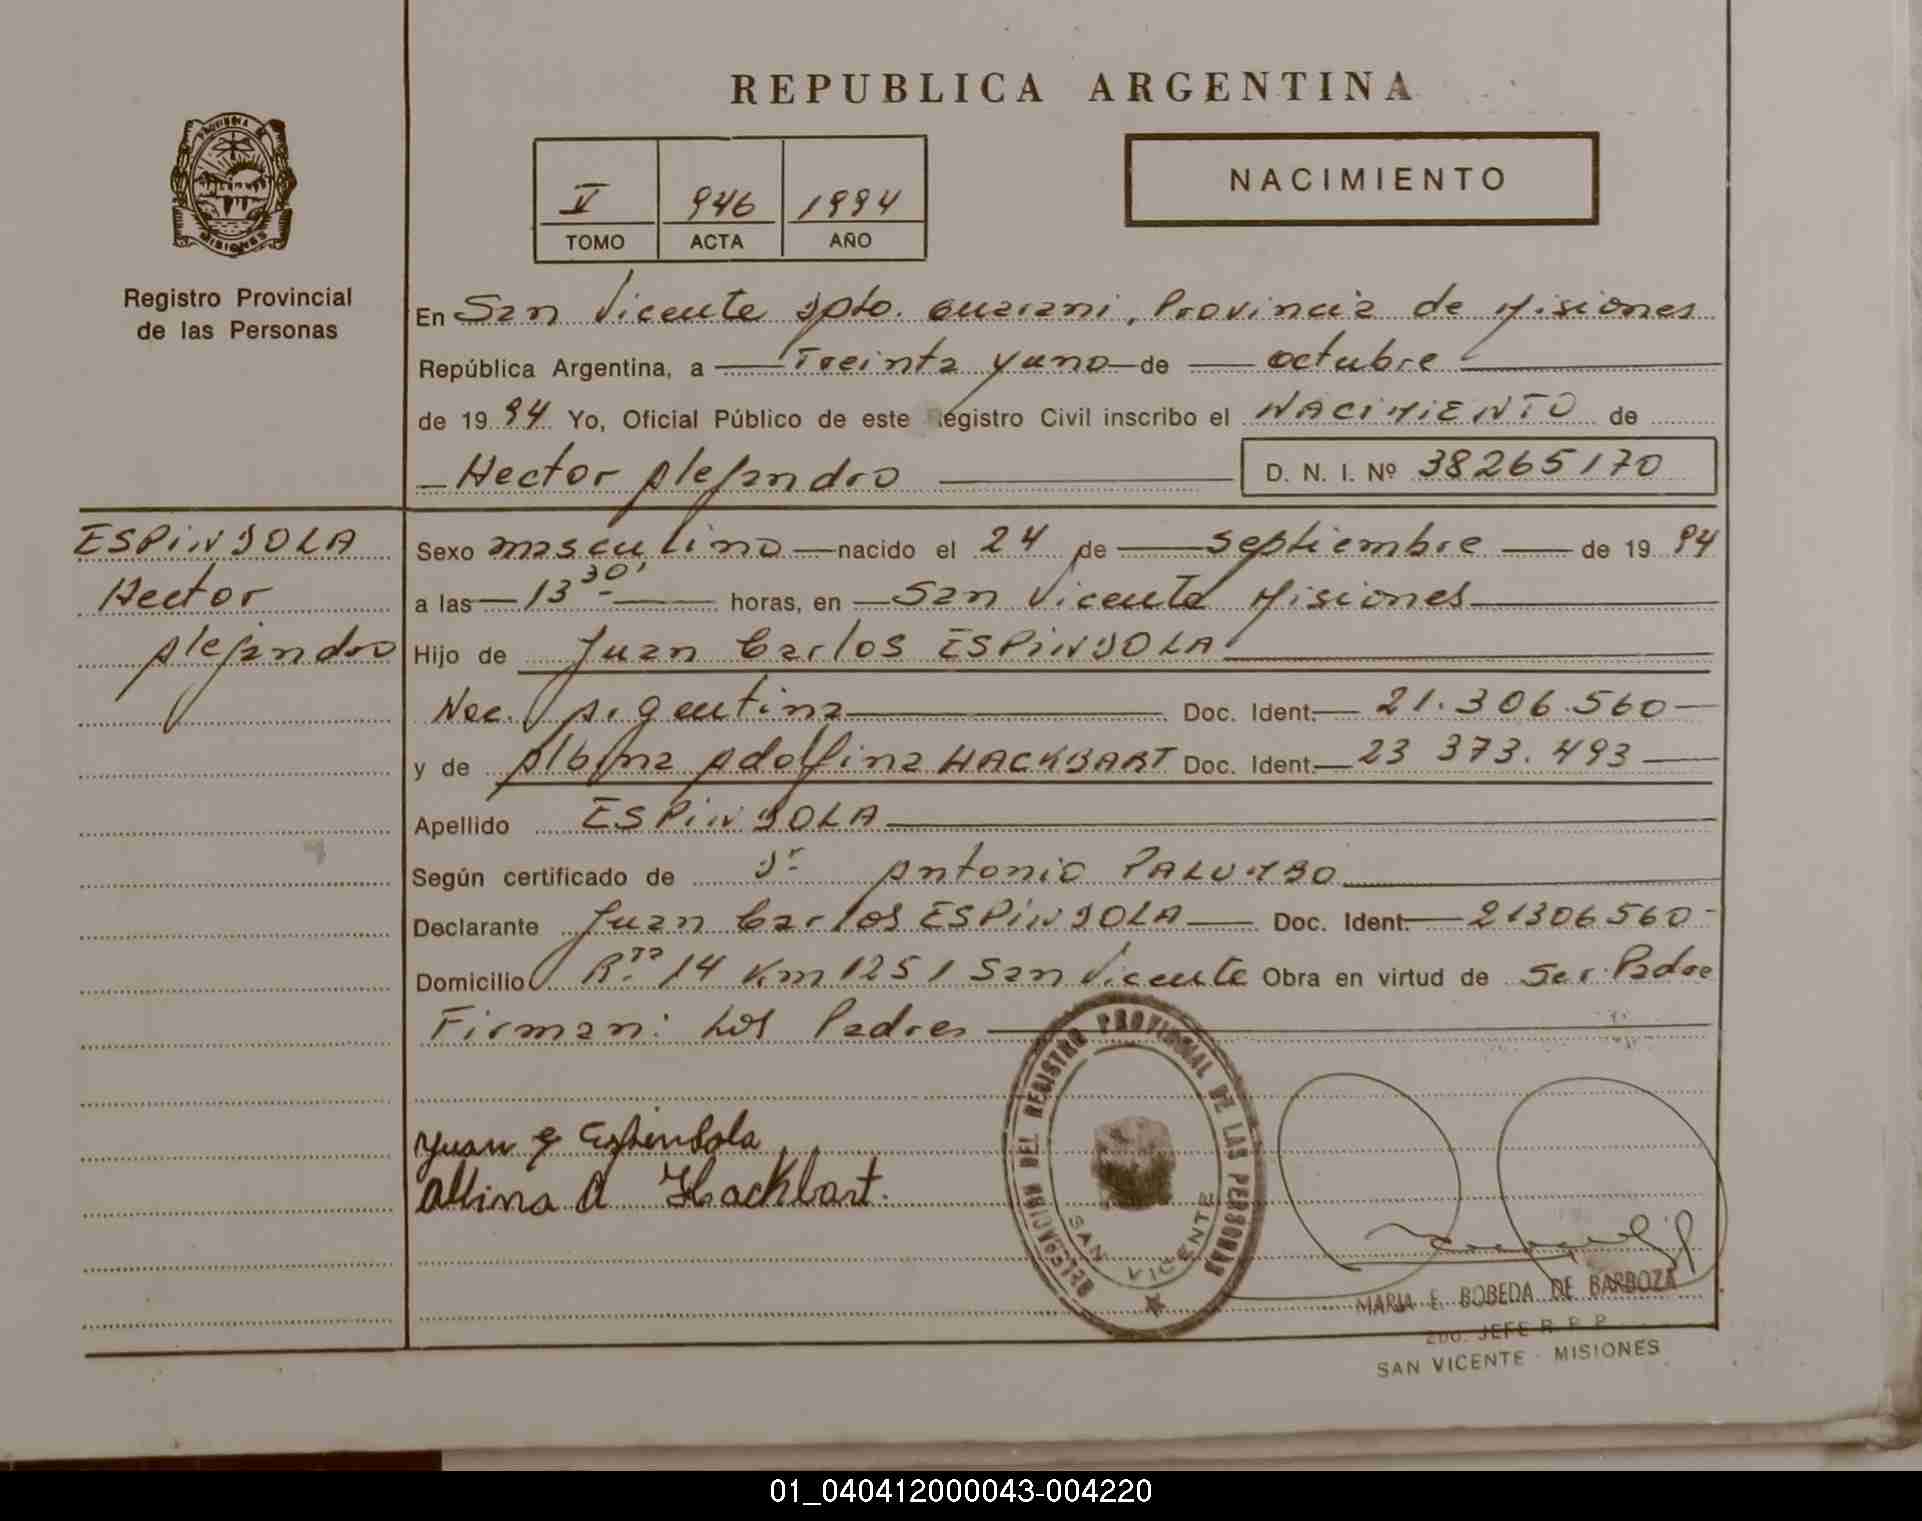 REPUBLICA ARGENTINA
PROVINCIA DE
MISIONES
Registro Provincial
de las Personas
V 946 1994
TOMO ACTA AÑO
NACIMIENTO
En San Vicente Dpto. Guarani, Provincia de Misiones
República Argentina, a Treinta y uno de octubre
de 1994 Yo, Oficial Público de este Registro Civil inscribo el NACIMIENTO de
Hector Alejandro D. N. I. Nº 38265170
ESPINDOLA
Hector
Alejandro
Sexo masculino nacido el 24 de septiembre de 1994
a las 13 30' horas, en San Vicente Misiones
Hijo de Juan Carlos ESPINDOLA
Nac. Argentina Doc. Ident. 21.306.560
y de Albina Adolfina HACKBART Doc. Ident. 23 373.493
Apellido ESPINDOLA
Según certificado de Dr Antonio PALUMBO
Declarante Juan Carlos ESPINDOLA Doc. Ident. 21306560
Domicilio Rta 14 Km 1251 San Vicente Obra en virtud de Ser Padre
Firman: Los Padres
Juan C Espindola
Albina A Hackbart.
DELEGACION DEL REGISTRO PROVINCIAL DE LAS PERSONAS
SAN VICENTE
MARIA E. BOBEDA DE BARBOZA
2do. JEFE R. P. P.
SAN VICENTE - MISIONES
01_040412000043-004220